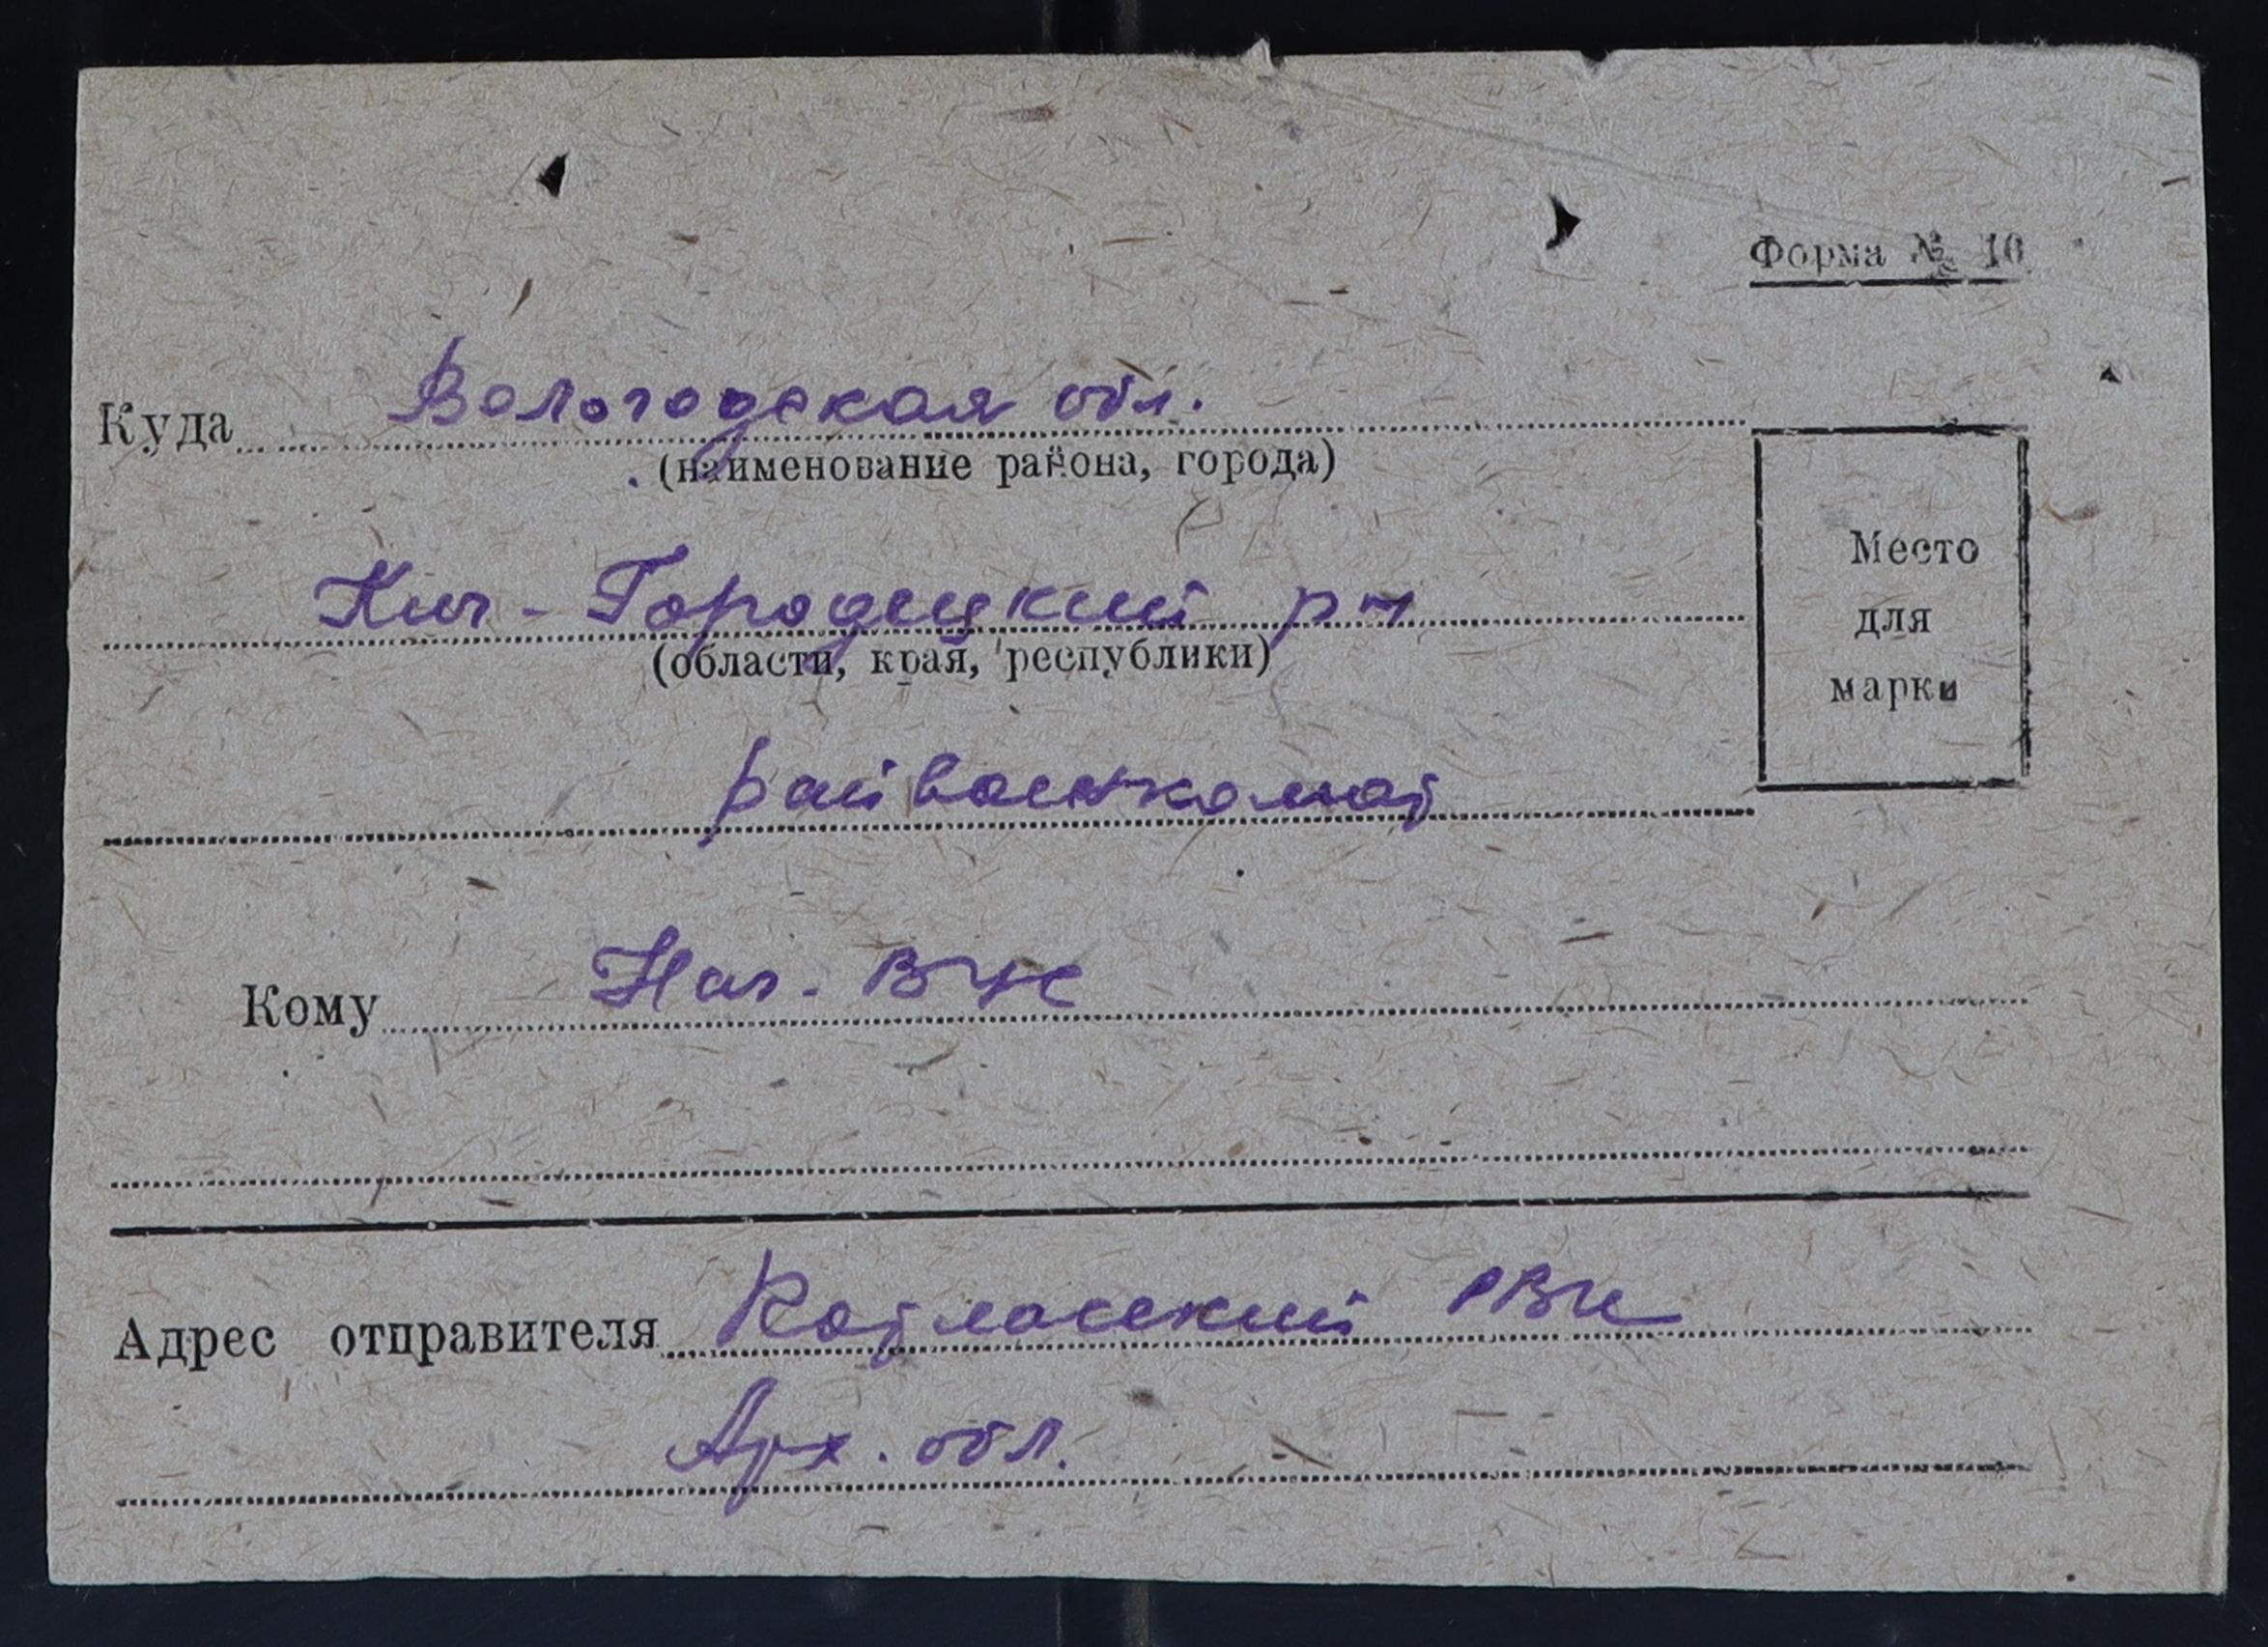 Форма № 10
Куда Вологодская обл.
(наименование района, города)
Кич-Городецкий рн
(области, края, республики)
райвоенкомат
Место
для
марки
Кому Нач. ВУС
Адрес отправителя Котласский РВК
Арх. обл.